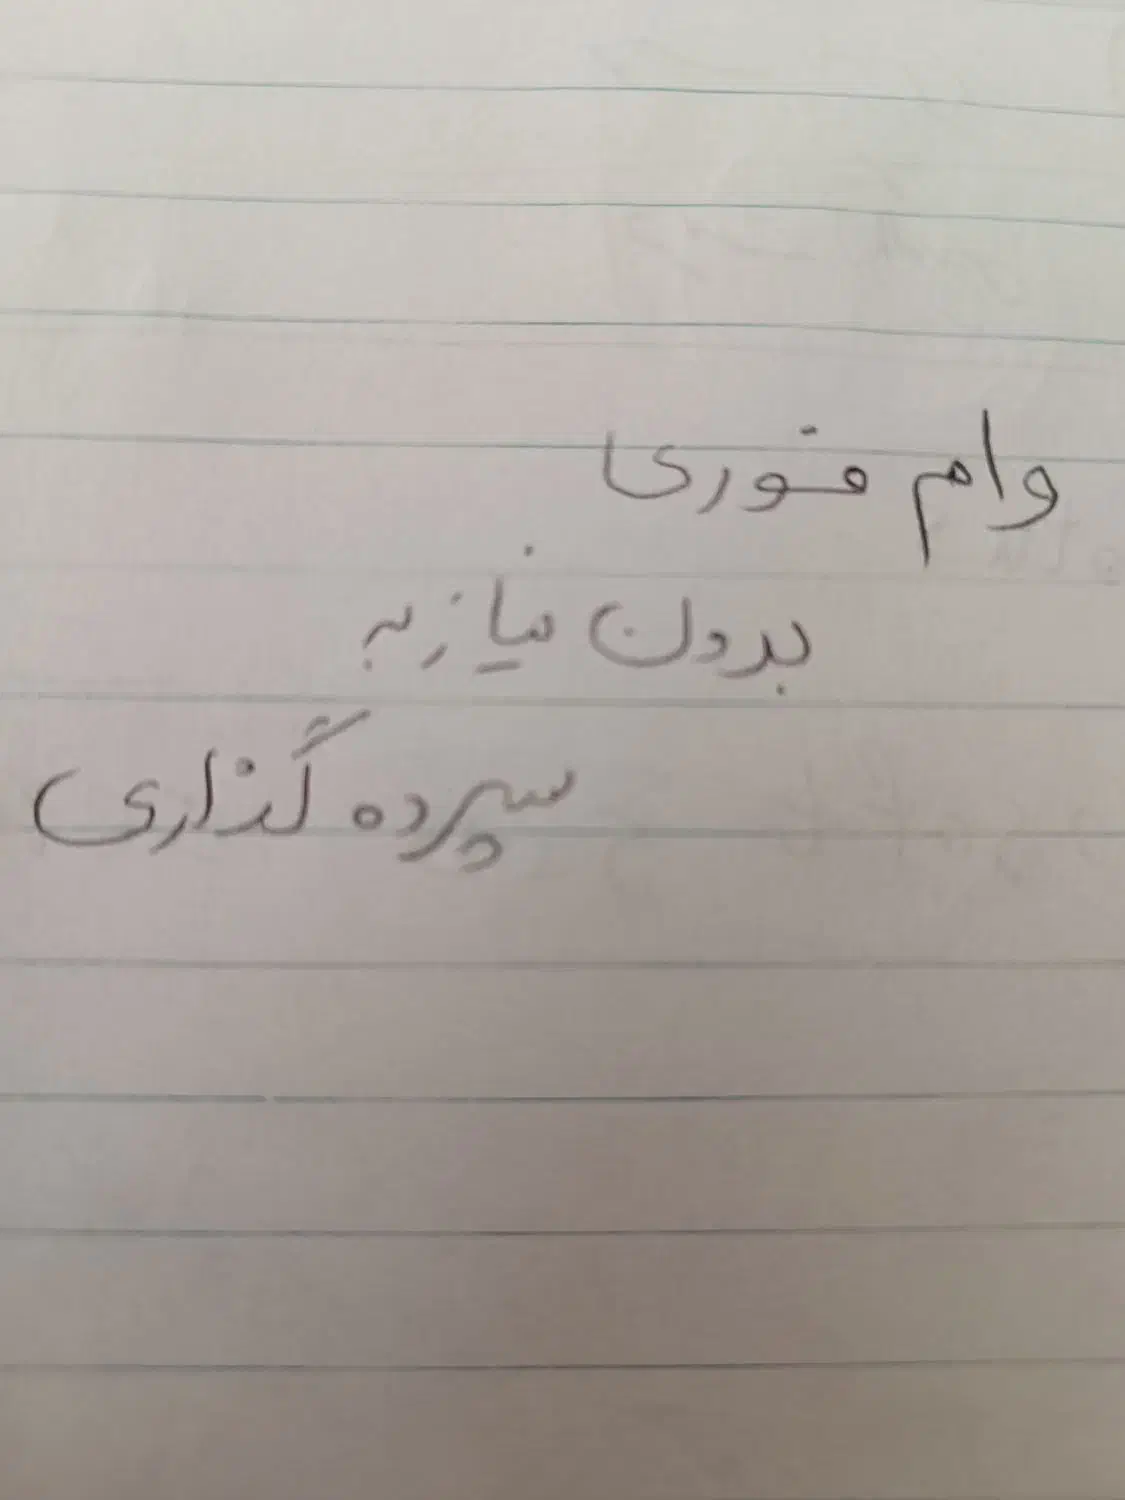 وام فوری
بدون نیاز به
سپرده گذاری